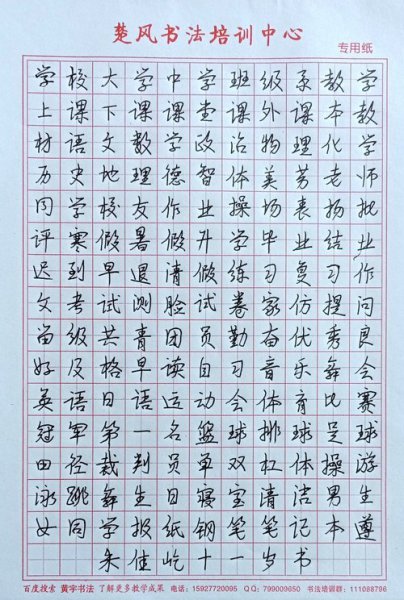 楚风书法培训中心
专用纸
学校大学中学班级系教学
上课下课课堂课外课本教
材语文数学政治物理化学
历史地理德智体美劳老师
同学校友作业操场表扬批
评寒假暑假升学毕业结业
迟到早退请假练习复习作
文考试测验试卷家仿提问
留级共青团员勤奋优秀良
好及格早读自习音乐舞会
英语日语运动会体育比赛
冠军第一名篮球排球足球
田径裁判员单双杠体操游
泳跳舞生日寝室清洁男生
女同学报纸钢笔笔记本遵
朱佳屹十一岁书
百度搜索 黄宇书法 了解更多教学成果 电话:15927720095 QQ:799009650 书法培训群:111088796